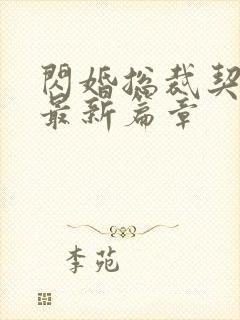 閃婚總裁契
最新篇章
李苑